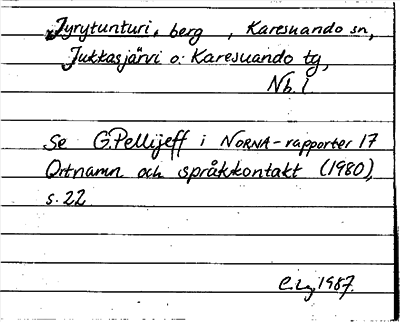 Jyrytunturi, berg, Karesuando sn,
Jukkasjärvi o. Karesuando tg,
Nb. l.
Se G. Pellijeff i NORNA-rapporter 17
Ortnamn och språkkontakt (1980),
s. 22
1987.